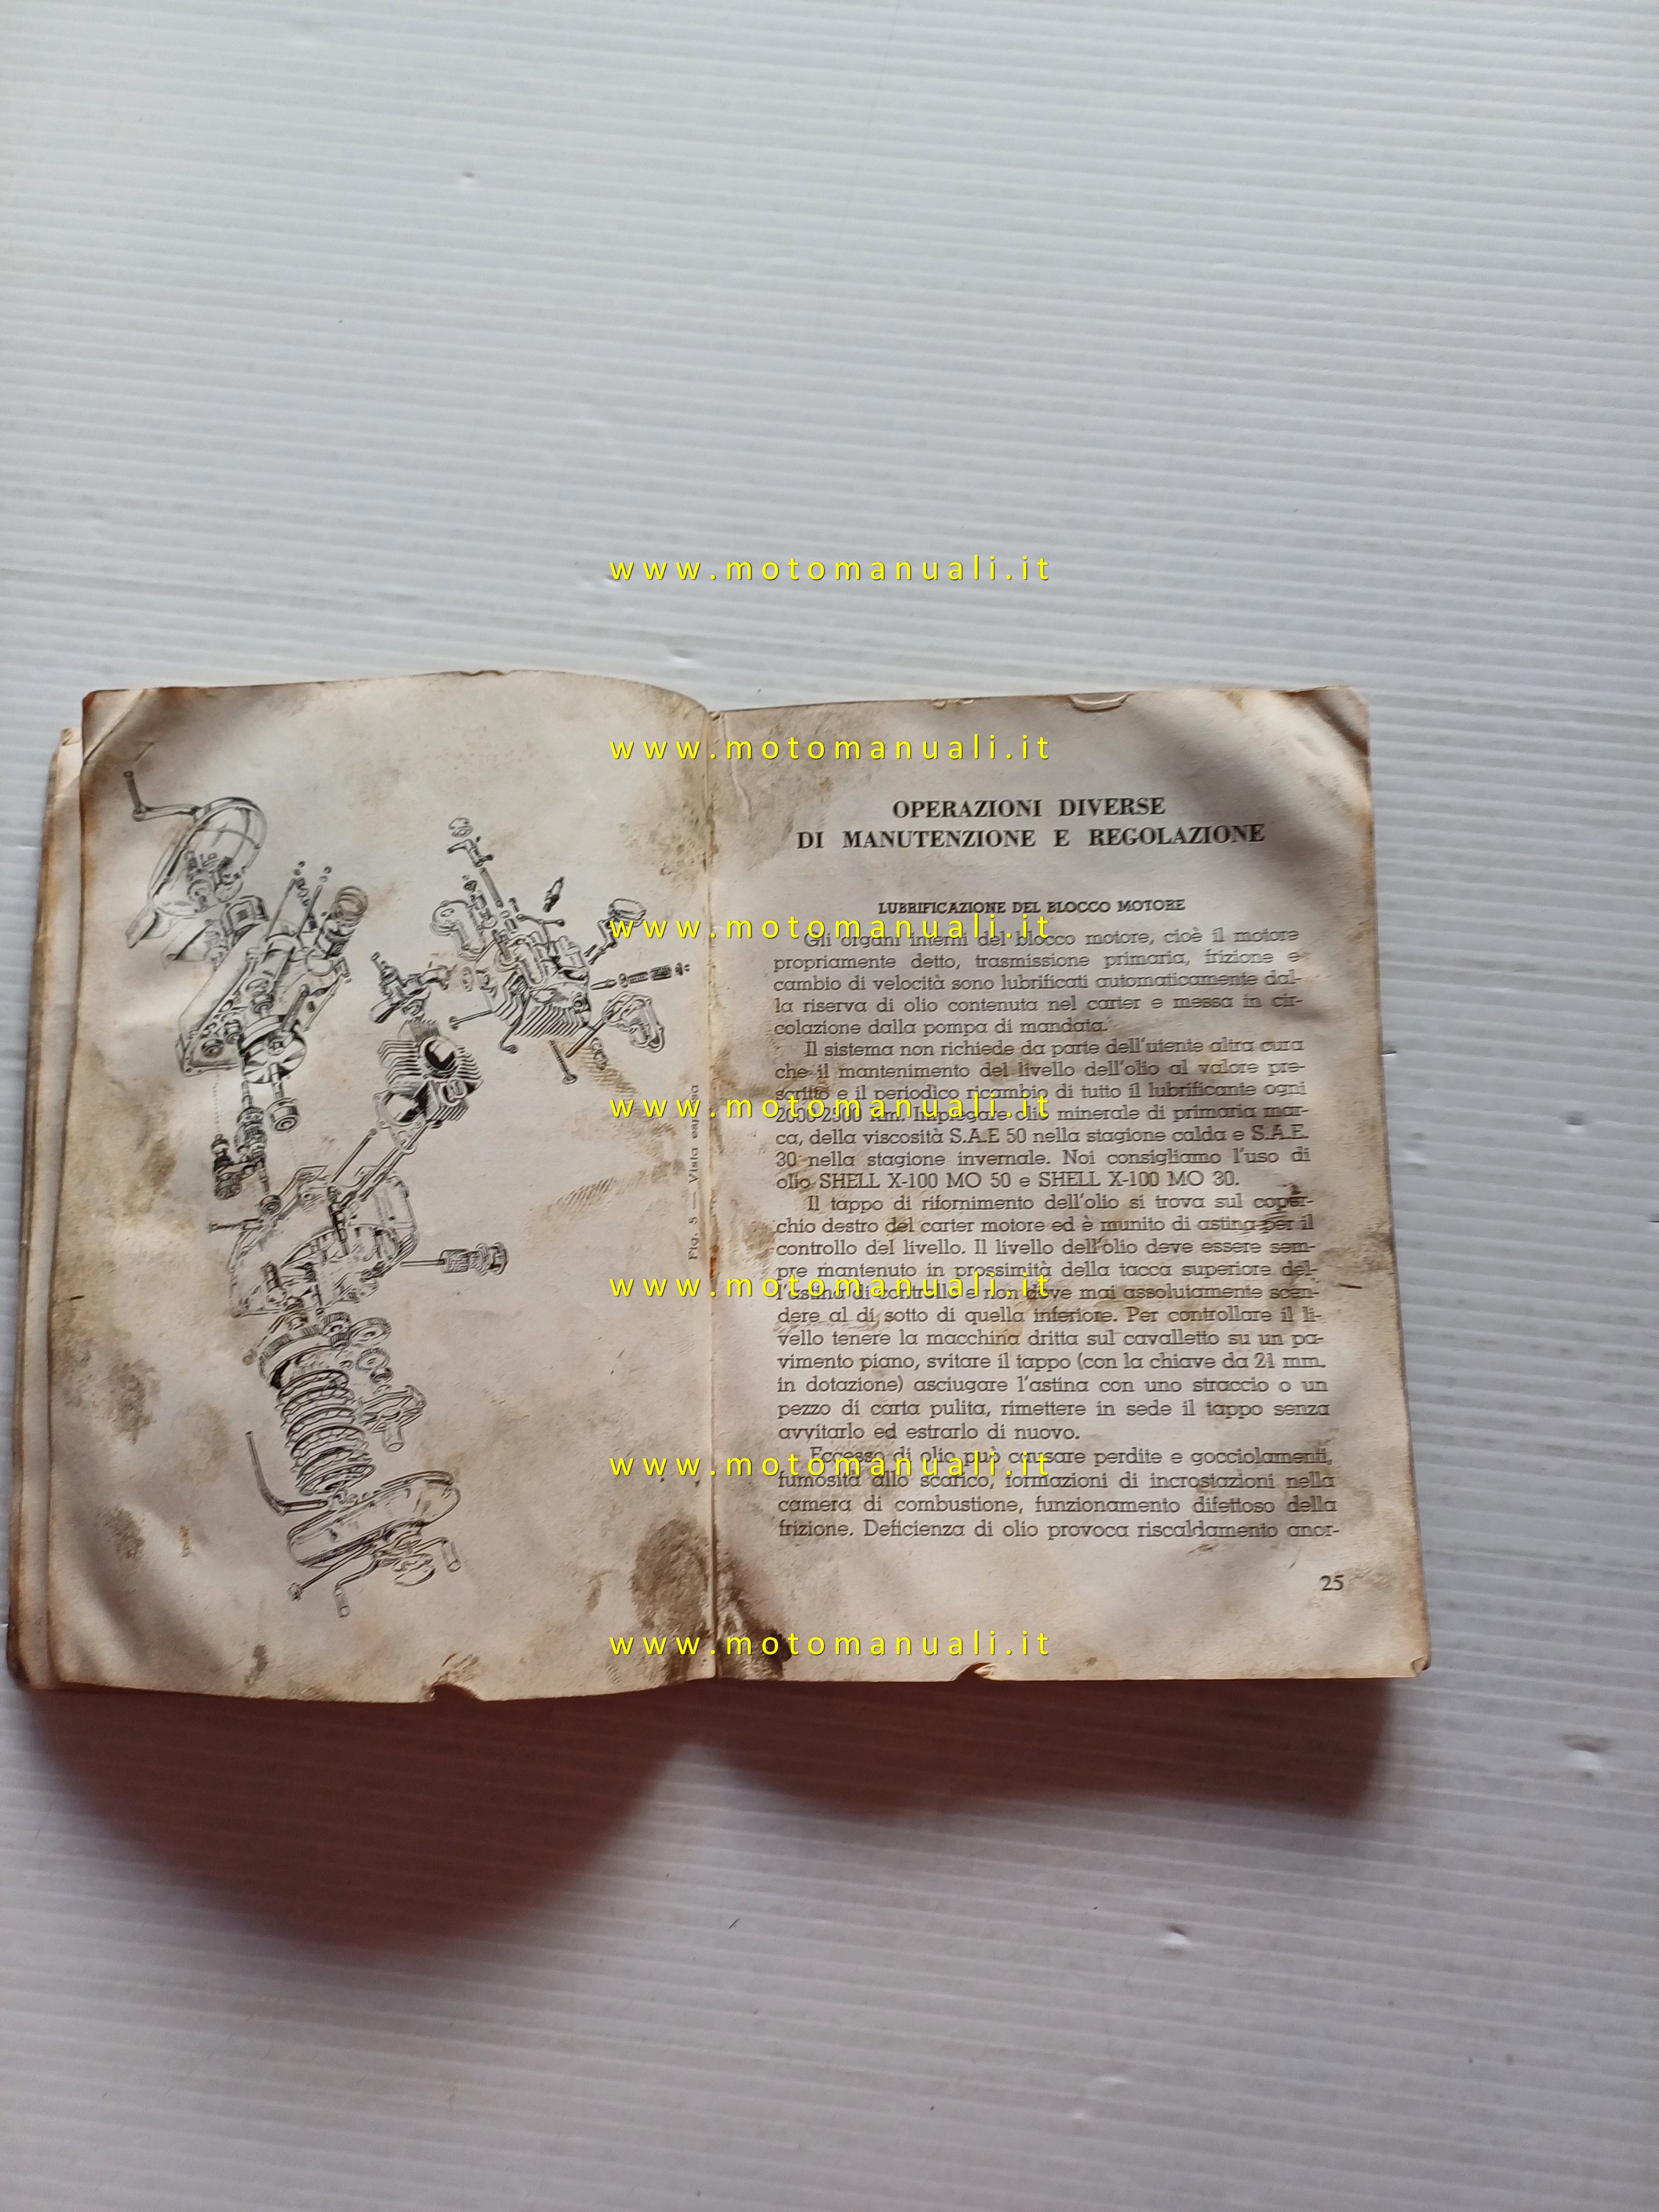 www.motomanuali.it
www.motomanuali.it
www.motomanuali.it
www.motomanuali.it
www.motomanuali.it
www.motomanuali.it
www.motomanuali.it
Fig. 5 — Vista esplosa
OPERAZIONI DIVERSE
DI MANUTENZIONE E REGOLAZIONE
LUBRIFICAZIONE DEL BLOCCO MOTORE
Gli organi interni del blocco motore, cioè il motore
propriamente detto, trasmissione primaria, frizione e
cambio di velocità sono lubrificati automaticamente dal-
la riserva di olio contenuta nel carter e messa in cir-
colazione dalla pompa di mandata.
Il sistema non richiede da parte dell'utente altra cura
che il mantenimento del livello dell'olio al valore pre-
scritto e il periodico ricambio di tutto il lubrificante ogni
2000-2500 Km. Impiegare olio minerale di primaria mar-
ca, della viscosità S.A.E 50 nella stagione calda e S.A.E.
30 nella stagione invernale. Noi consigliamo l'uso di
olio SHELL X-100 MO 50 e SHELL X-100 MO 30.
Il tappo di rifornimento dell'olio si trova sul coper-
chio destro del carter motore ed è munito di astina per il
controllo del livello. Il livello dell'olio deve essere sem-
pre mantenuto in prossimità della tacca superiore del-
l'astina di controllo e non deve mai assolutamente scen-
dere al di sotto di quella inferiore. Per controllare il li-
vello tenere la macchina dritta sul cavalletto su un pa-
vimento piano, svitare il tappo (con la chiave da 21 mm.
in dotazione) asciugare l'astina con uno straccio o un
pezzo di carta pulita, rimettere in sede il tappo senza
avvitarlo ed estrarlo di nuovo.
Eccesso di olio può causare perdite e gocciolamenti,
fumosità allo scarico, formazioni di incrostazioni nella
camera di combustione, funzionamento difettoso della
frizione. Deficienza di olio provoca riscaldamento anor-
25